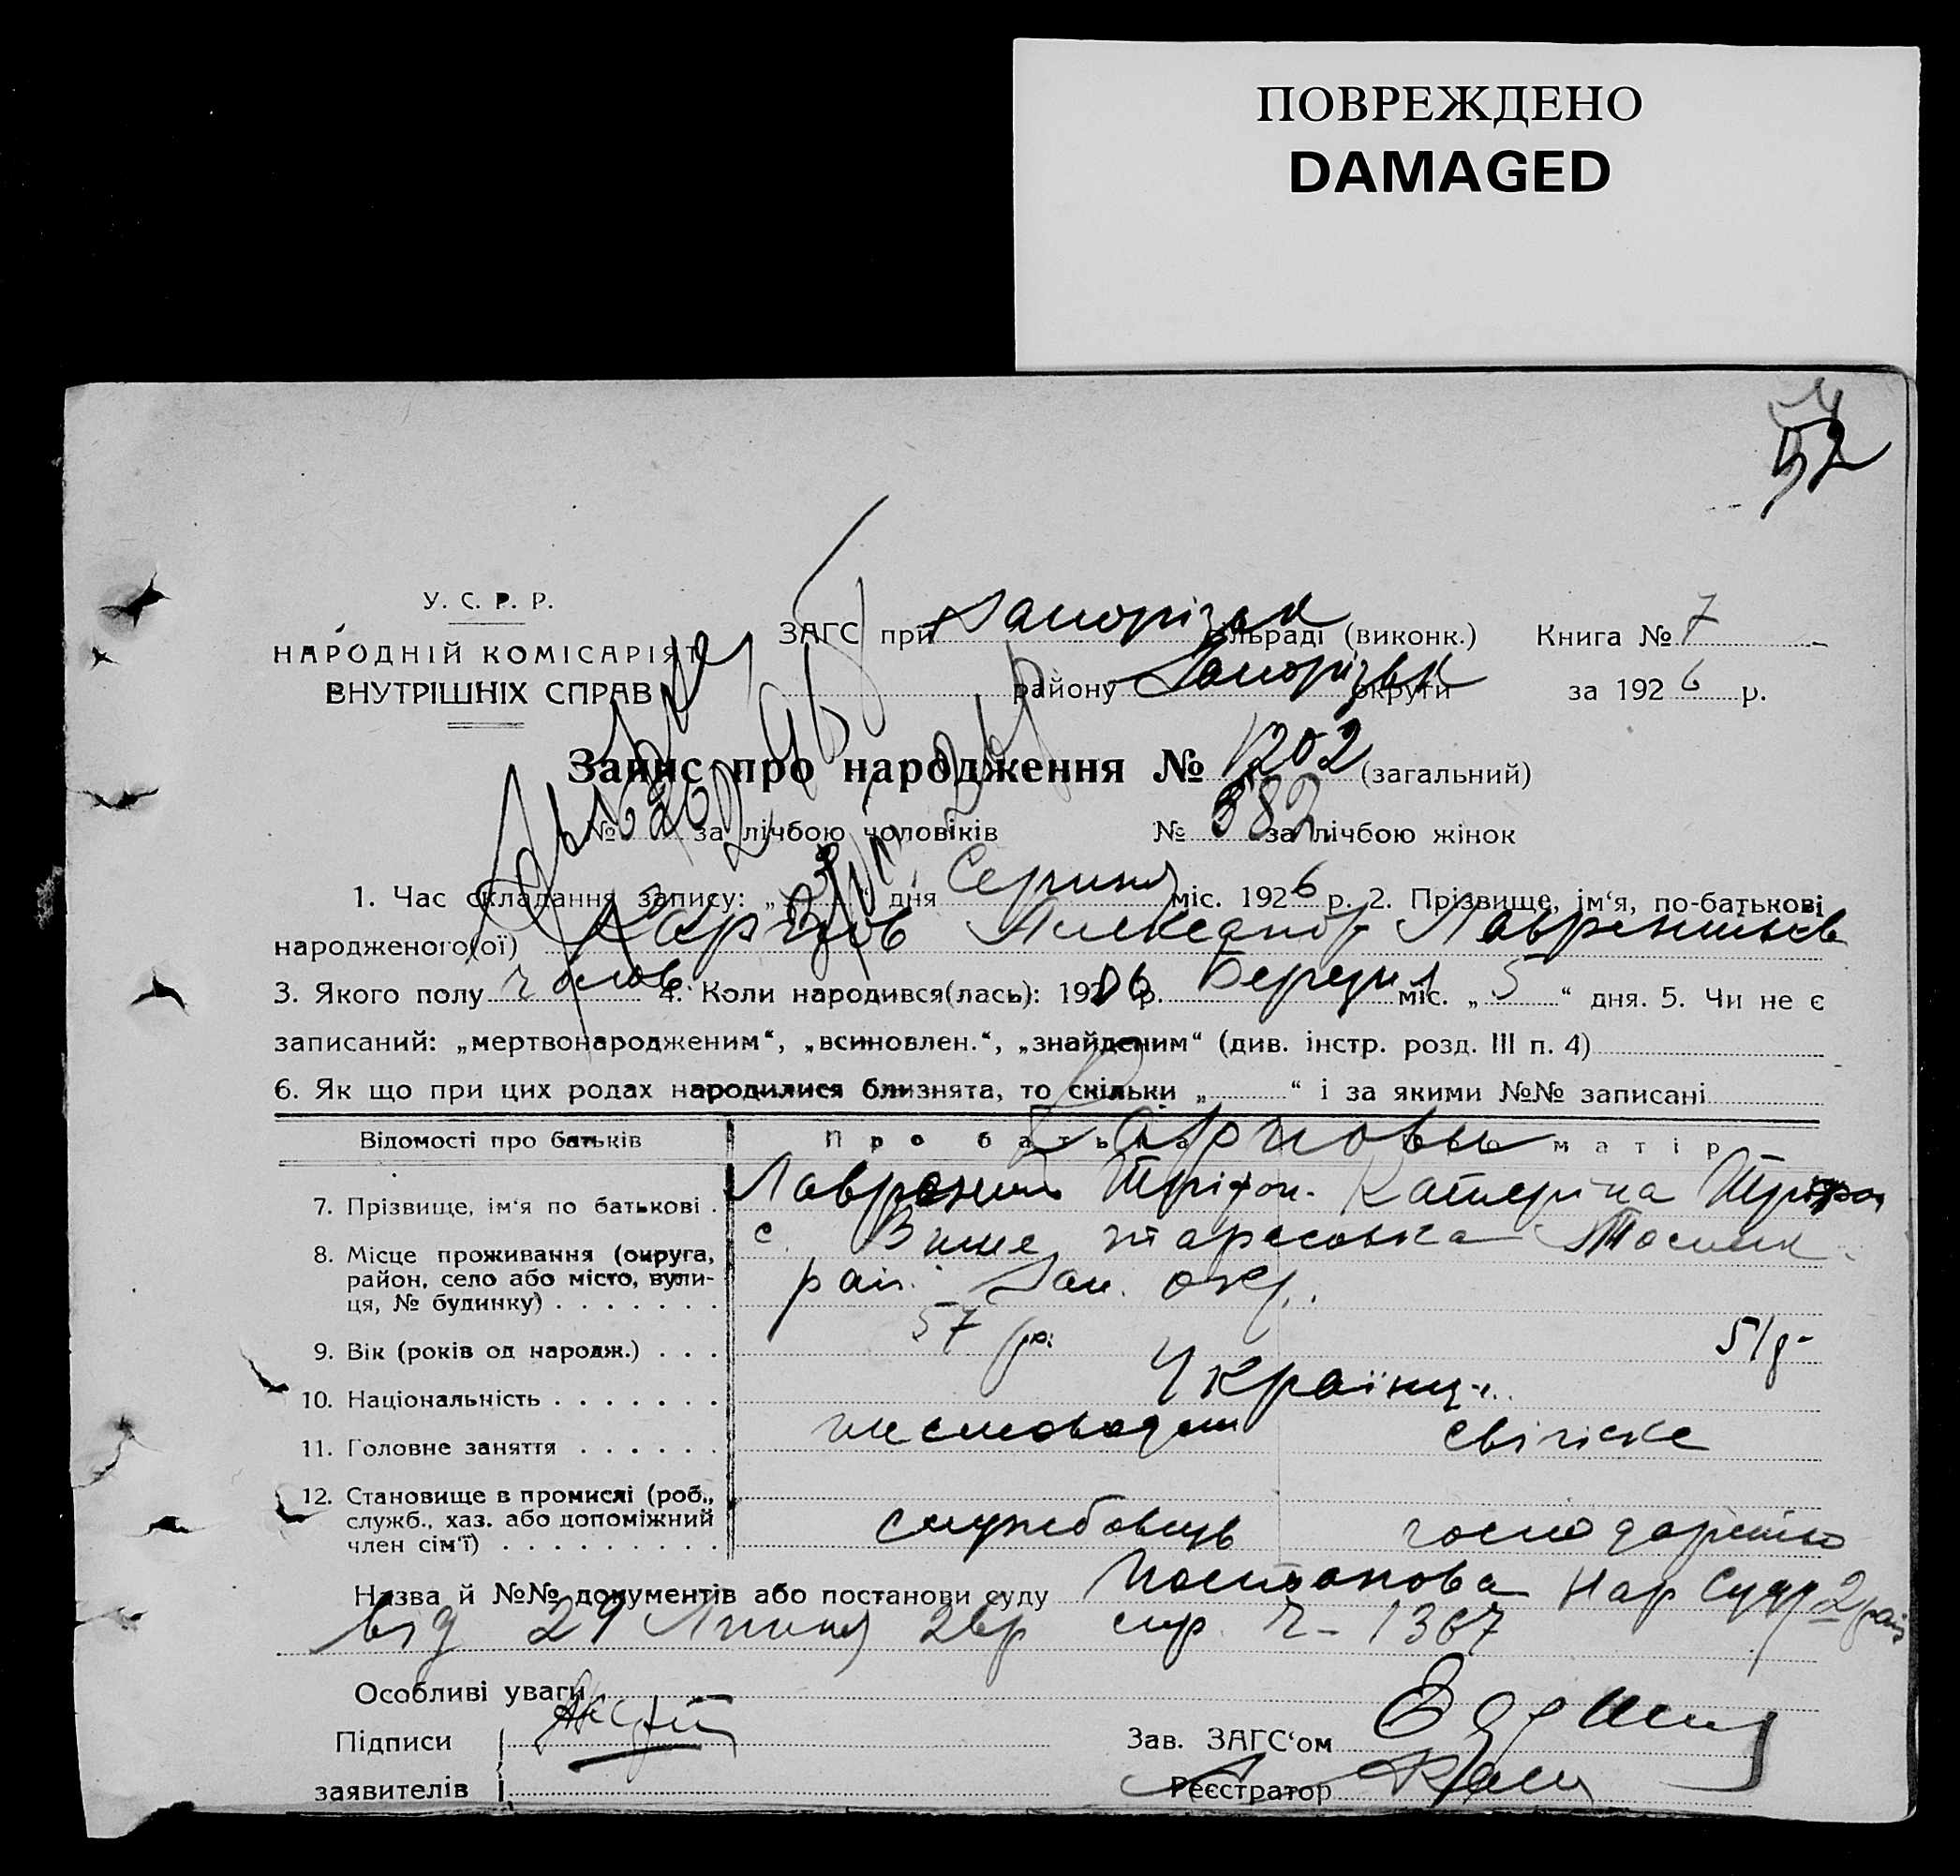 ПОВРЕЖДЕНО
DAMAGED
52
У. С. Р. Р.
НАРОДНІЙ КОМІСАРІЯТ
ВНУТРІШНІХ СПРАВ
ЗАГС при Запорізьк ільраді (виконк.) Книга № 7
району Запорізьк округи за 1926 р.
Запис про народження № 1202 (загальний)
№ 620 за лічбою чоловіків № 582 за лічбою жінок
1. Час складання запису: „ 3 “ дня Серпня міс. 1926 р. 2. Прізвище, ім‘я, по-батькові
народженого(ої) Карпов Александр Лаврентьев
3. Якого полу чолов. 4. Коли народився(лась): 1906 р. Березня міс. „ 5 “ дня. 5. Чи не є
записаний: „мертвонародженим“, „всиновлен.“, „знайденим“ (див. інстр. розд. III п. 4)
6. Як що при цих родах народилися близнята, то скільки „ “ і за якими №№ записані
Відомості про батьків Про батька Про матір
Карповы
7. Прізвище, ім‘я по батькові . Лаврентий Тріфон. Катеріна Тріфон
8. Місце проживання (округа, район, село або місто, вулиця, № будинку) . . . . . . . с. Вище тарасовка Томак.
рай. Зап. окр.
9. Вік (років од народж.) . . . 57 р. 51 р.
10. Національність . . . . . . . Українці
11. Головне заняття . . . . . . письмоводит
12. Становище в промислі (роб., служб., хаз. або допоміжний член сім‘ї) . . . . . . . . . службовець господарство
Назва й №№ документів або постанови суду Постанова Нар Суду 2 рай
від 29 Липня 26 р спр. Ч - 1367
Особливі уваги
Підписи
Зав. ЗАГС‘ом
заявителів
Реєстратор